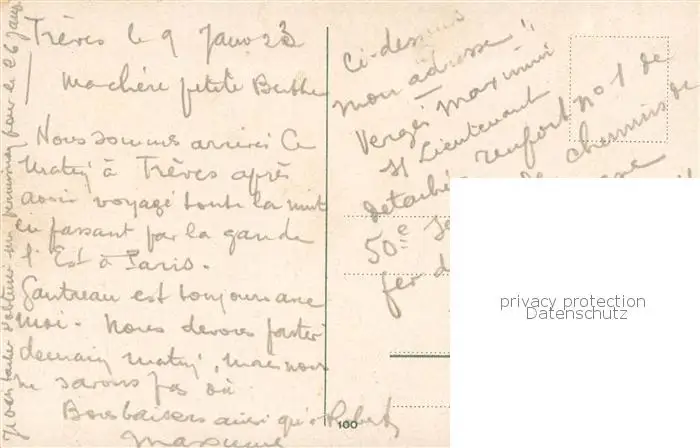 Trèves le 9 Janv 23
Ma chère petite Berthe
Nous sommes arrivés Ce
Matin à Trèves après
avoir voyagé toute la nuit
en passant par la gare de
l'Est à Paris.
Gautreau est toujours avec
moi. Nous devons partir
demain matin, mais nous
ne savons pas où
Bons baisers ainsi qu'à Robert
Maxime
Je vais tacher d'obtenir une permission pour le 26 Janv
Ci-dessous
mon adresse "
Vergé Maximin
Sr Lieutenant
detaché renfort no 1 de
chemins de
50e
fer
100
privacy protection
Datenschutz